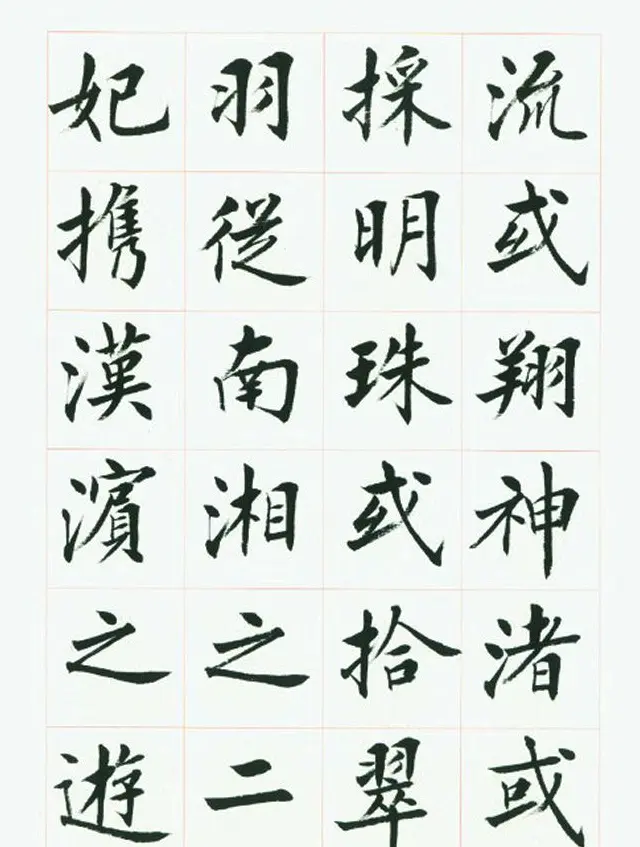 流或翔神渚或
採明珠或拾翠
羽從南湘之二
妃携漢濱之遊